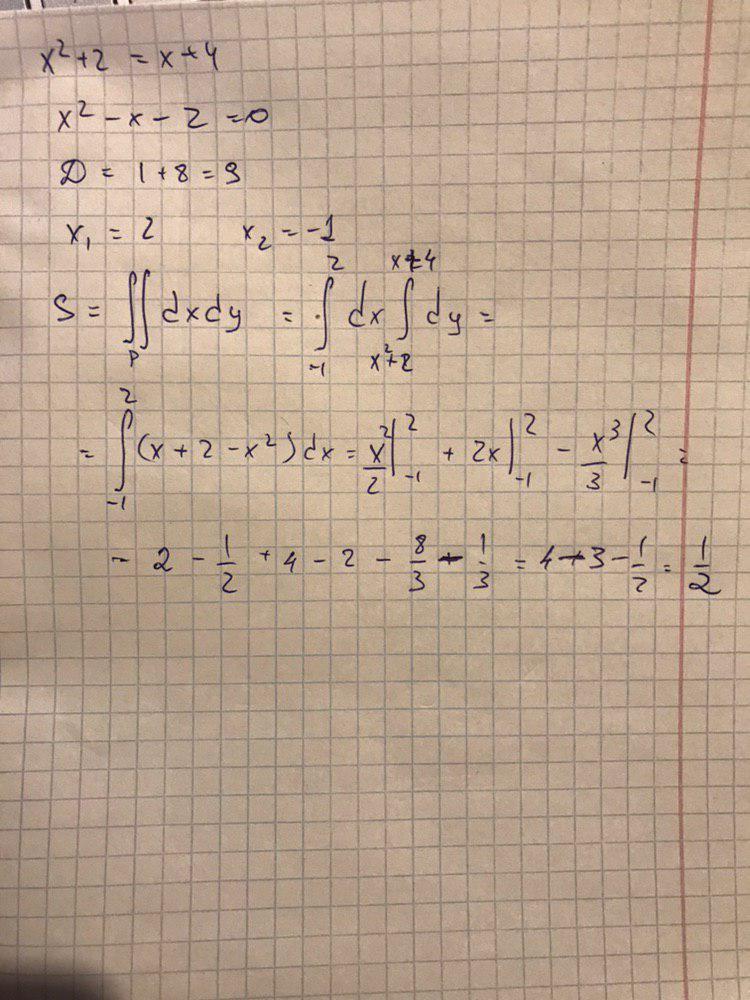 x² + 2 = x + 4
x² - x - 2 = 0
D = 1 + 8 = 9
x₁ = 2 x₂ = -1
S = ∬_D dxdy = ∫_{-1}^{2} dx ∫_{x²+2}^{x+4} dy =
= ∫_{-1}^{2} (x + 2 - x²) dx = x²/2 |_{-1}^{2} + 2x |_{-1}^{2} - x³/3 |_{-1}^{2} =
- 2 - 1/2 + 4 - 2 - 8/3 - 1/3 = 4 - 3 - 1/2 = 1/2